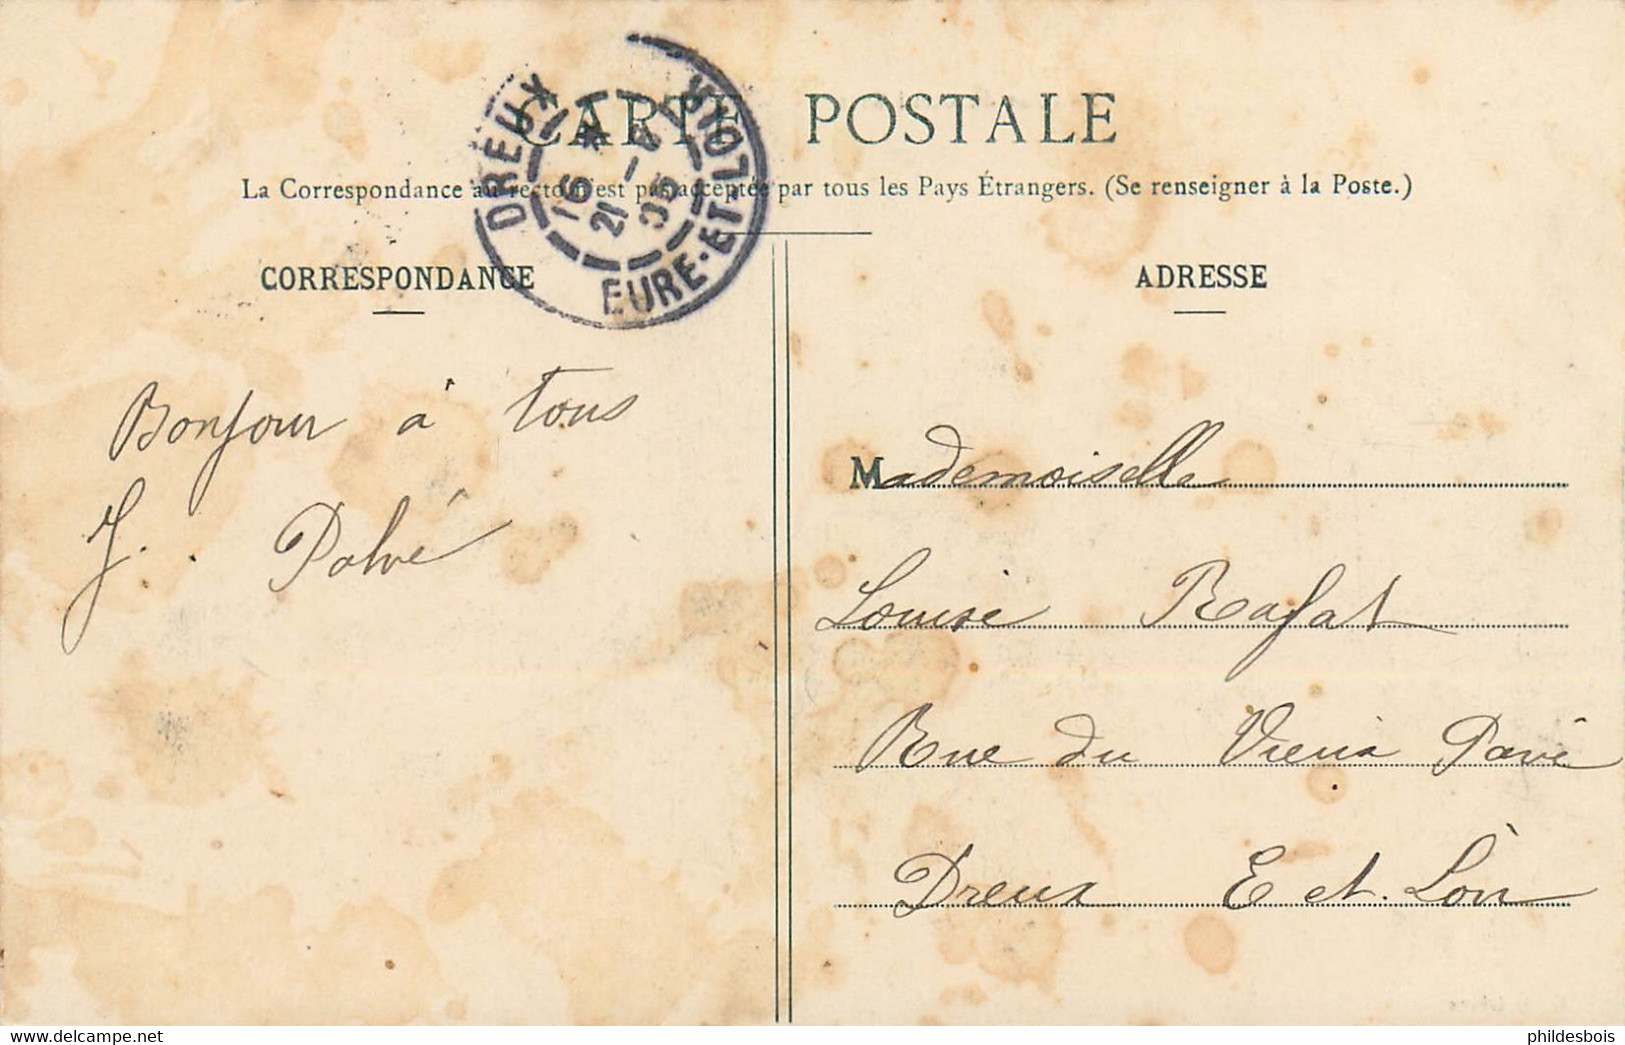 CARTE POSTALE
La Correspondance au recto n'est pas acceptée par tous les Pays Étrangers. (Se renseigner à la Poste.)
DREUX
EURE-ET-LOIR
16
21
05
CORRESPONDANCE
Bonjour à tous
J.
ADRESSE
Mademoiselle
Louise Rafat
Rue du Vieux Pavé
Dreux E et Loir
phildesbois